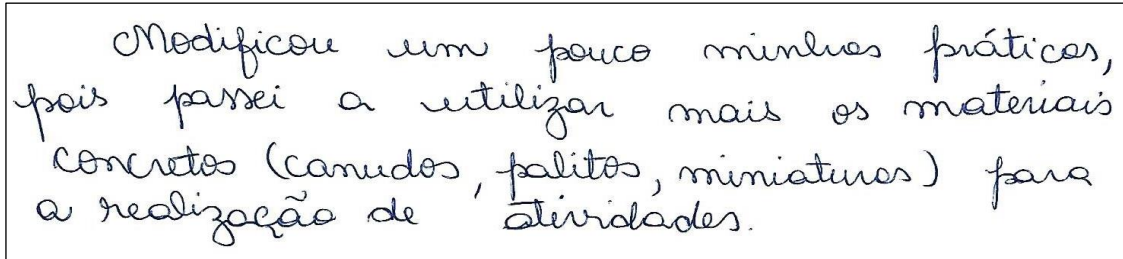 Modificou um pouco minhas práticas,
pois passei a utilizar mais os materiais
concretos (canudos, palitos, miniaturas) para
a realização de atividades.